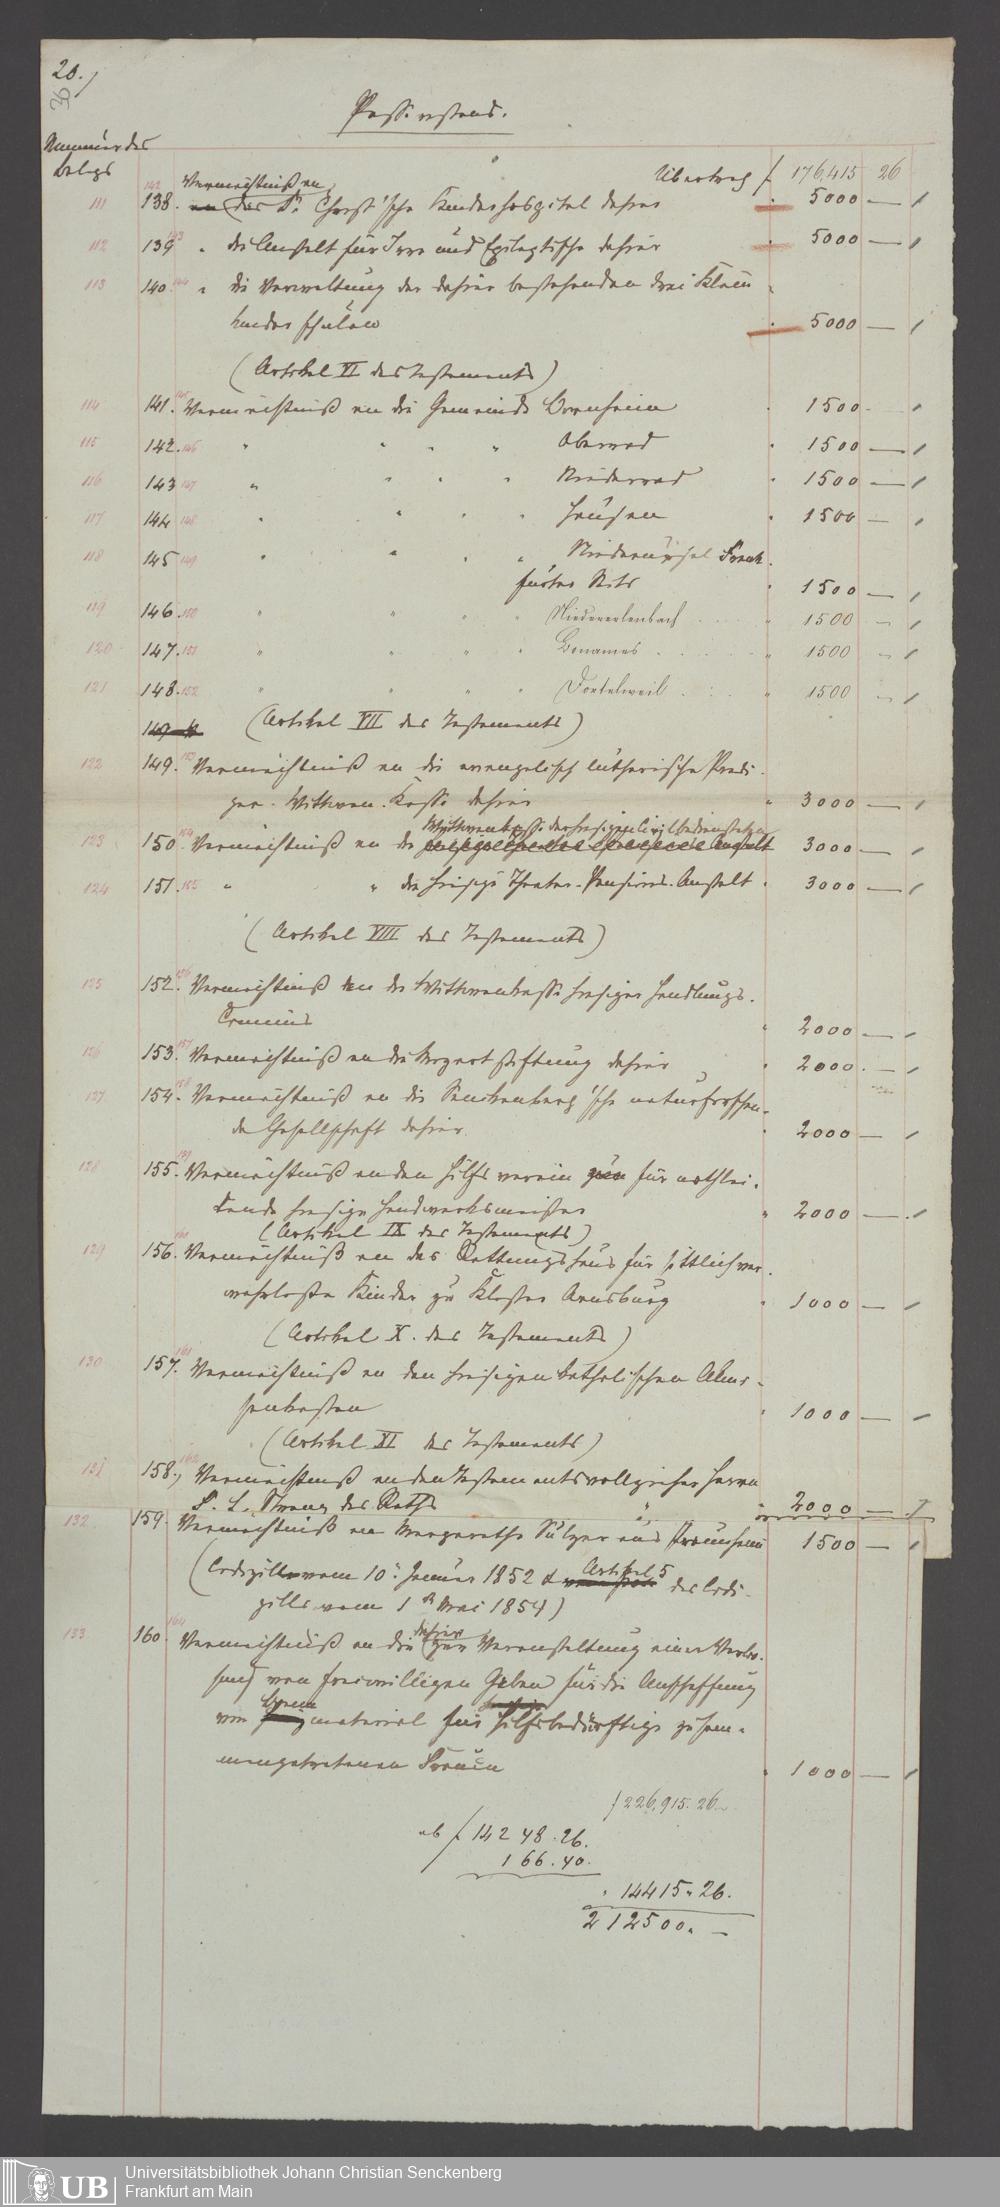 20.)
Passivstand.
Nummer des
Belegs
Übertrag f 176,415 26
Vermächtniß an
111 142 138. das Dr. Christ'sche Kinderhospital dahier " 5000 —
112 143 139 " die Anstalt für Irre und Epileptische dahier " 5000 —
113 144 140. " die Verwaltung der dahier bestehenden drei Klein
kinderschulen " 5000 —
(Artikel VI des Testaments)
114 145 141. Vermächtniß an die Gemeinde Bornheim " 1500 —
115 142. 146 " " " " Oberrad " 1500 —
116 143 147 " " " " Niederrad " 1500 —
117 144 148 " " " " Hausen " 1500 —
118 145 149 " " " " Niederursel Frank
furter Seits " 1500 —
119 146. 150 " " " " Niedererlenbach " 1500 —
120 147. 151 " " " " Bonames " 1500 —
121 148. 152 " " " " Dortelweil " 1500 —
(Artikel VII des Testaments)
122 153 149. Vermächtniß an die evangelisch lutherische Predi-
ger-Wittwen-Kasse dahier " 3000 —
Wittwenkasse der hiesigen Civilbediensteten
123 154 150. Vermächtniß an die 3000 —
124 151. 155 " " die hiesige Theater-Pensions-Anstalt " 3000 —
(Artikel VIII des Testaments)
125 156 152. Vermächtniß an die Wittwenkasse hiesiger Handlungs-
Commis " 2000 —
126 157 153. Vermächtniß an die Mozartstiftung dahier " 2000 —
127 158 154. Vermächtniß an die Senckenberg'sche naturforschen-
de Gesellschaft dahier " 2000 —
128 159 155. Vermächtniß an den Hilfsverein für nothlei-
dende hiesige Handwerksmeister " 2000 —
(Artikel IX des Testaments)
129 160 156. Vermächtniß an das Rettungshaus für sittlich ver-
wahrloste Kinder zu Kloster Arnsburg " 1000 —
(Artikel X. des Testaments)
130 161 157. Vermächtniß an den hiesigen katholischen Almo-
senkasten " 1000 —
(Artikel XI des Testaments)
131 162 158., Vermächtniß an den Testamentsvollzieher Herrn
des Raths " 2000 —
132 159. Vermächtniß an Margaretha Sulzer aus Praunheim 1500 —
(Codizille vom 10. Januar 1852 & Artikel 5 des Codi-
zills vom 1 Mai 1854)
133 164 160. Vermächtniß an die dahier zur Veranstaltung einer Verloo-
sung von freiwilligen Gaben für die Anschaffung
von Brennmaterial für Hilfsbedürftige zusam-
mengetretenen Frauen " 1000 —
f 226,915. 26
ab f 14248. 26.
166. 40.
" 14415. 26.
212500. —
Universitätsbibliothek Johann Christian Senckenberg
Frankfurt am Main
UB